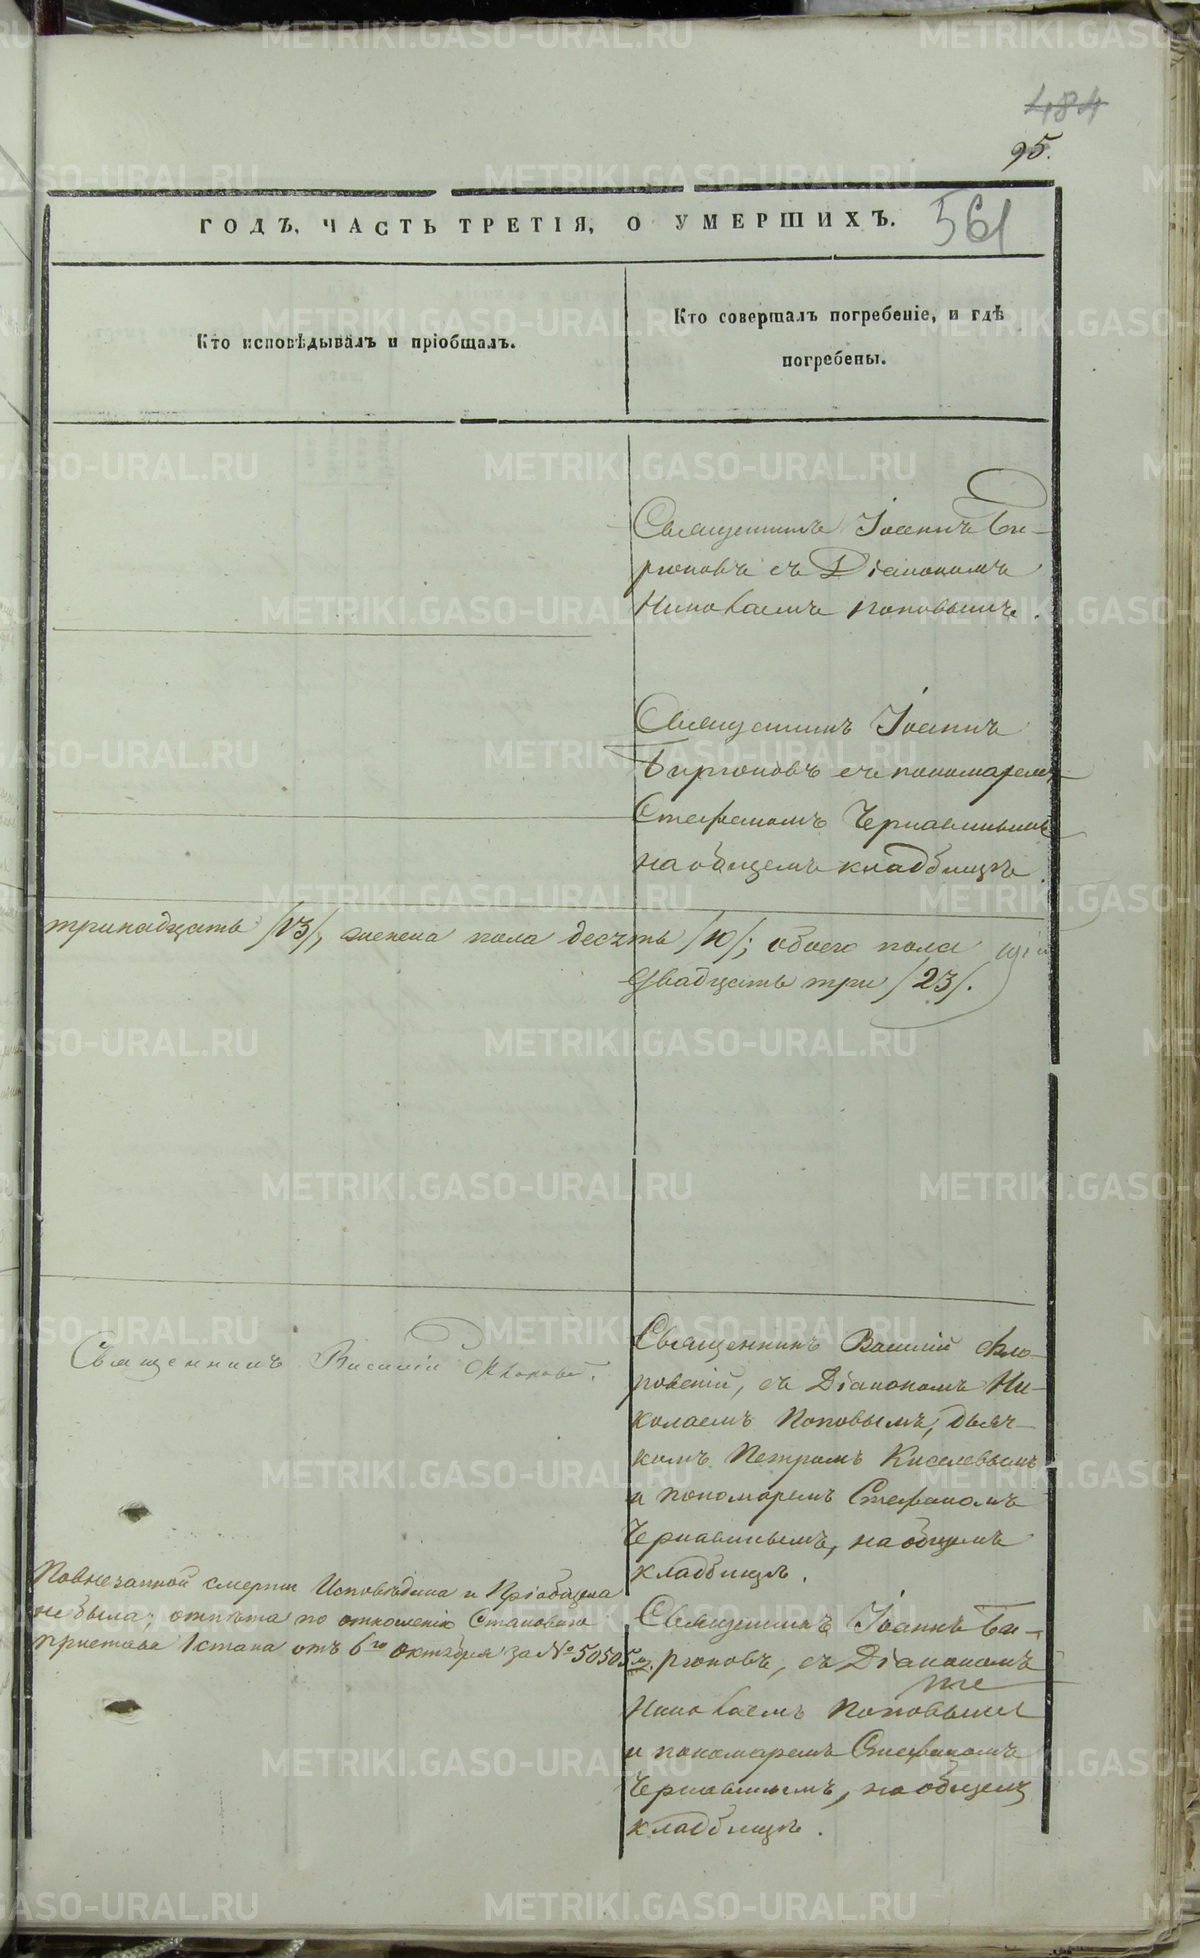 484
95.
ГОДЪ, ЧАСТЬ ТРЕТІЯ, О УМЕРШИХЪ. 561
Кто исповѣдывалъ и пріобщалъ.
Кто совершалъ погребеніе, и гдѣ
погребены.
Священникъ Іоаннъ Би-
рюковъ съ Діакономъ
Николаемъ Поповымъ.
Священникъ Іоаннъ
Бирюковъ съ пономаремъ
Стефаномъ Чернавинымъ
на общемъ кладбищѣ.
тринадцать /13/, женска пола десять /10/; обоего пола
двадцать три /23/.
Священникъ Василій Флоровскій, съ Діакономъ Ни-
колаемъ Поповымъ, дьяч-
комъ Петромъ Киселевымъ
и пономаремъ Стефаномъ
Чернавинымъ, на общемъ
кладбищѣ.
Священникъ Василій
По внезапной смерти Исповѣдана и Пріобщена
не была; отпѣта по отношенію Становаго
пристава 1 стана отъ 6го октября за № 50505
Священникъ Іоаннъ Би-
рюковъ, съ Діакономъ
Николаемъ Поповымъ
и пономаремъ Стефаномъ
Чернавинымъ, на общемъ
кладбищѣ.
METRIKI.GASO-URAL.RU